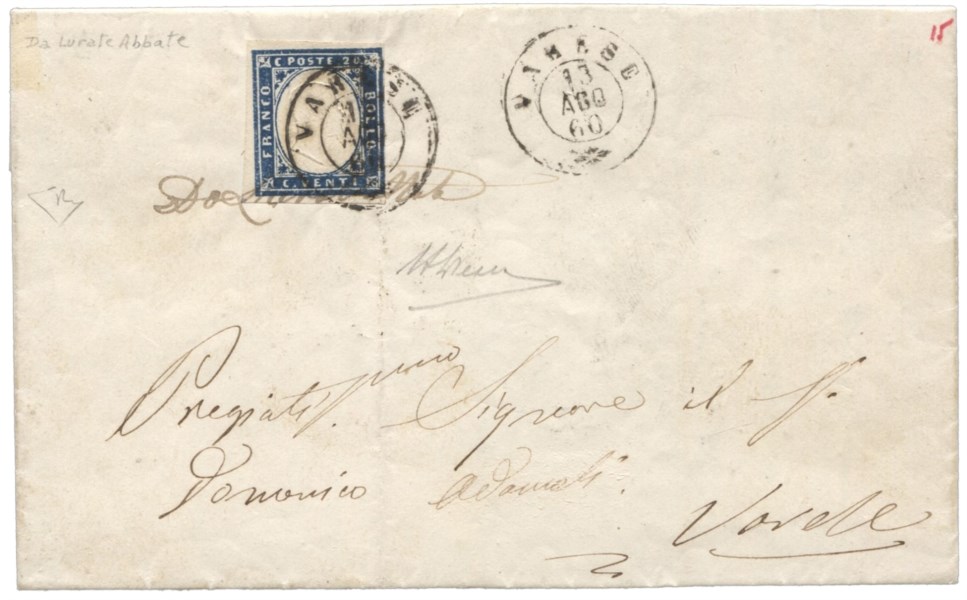 Da Lurate Abbate
15
C POSTE 20
FRANCO
BOLLO
C. VENTI
VARESE
VARESE
13
AGO
60
Da
Pregiatissimo Signore il S.
Domenico Adamoli.
Varese